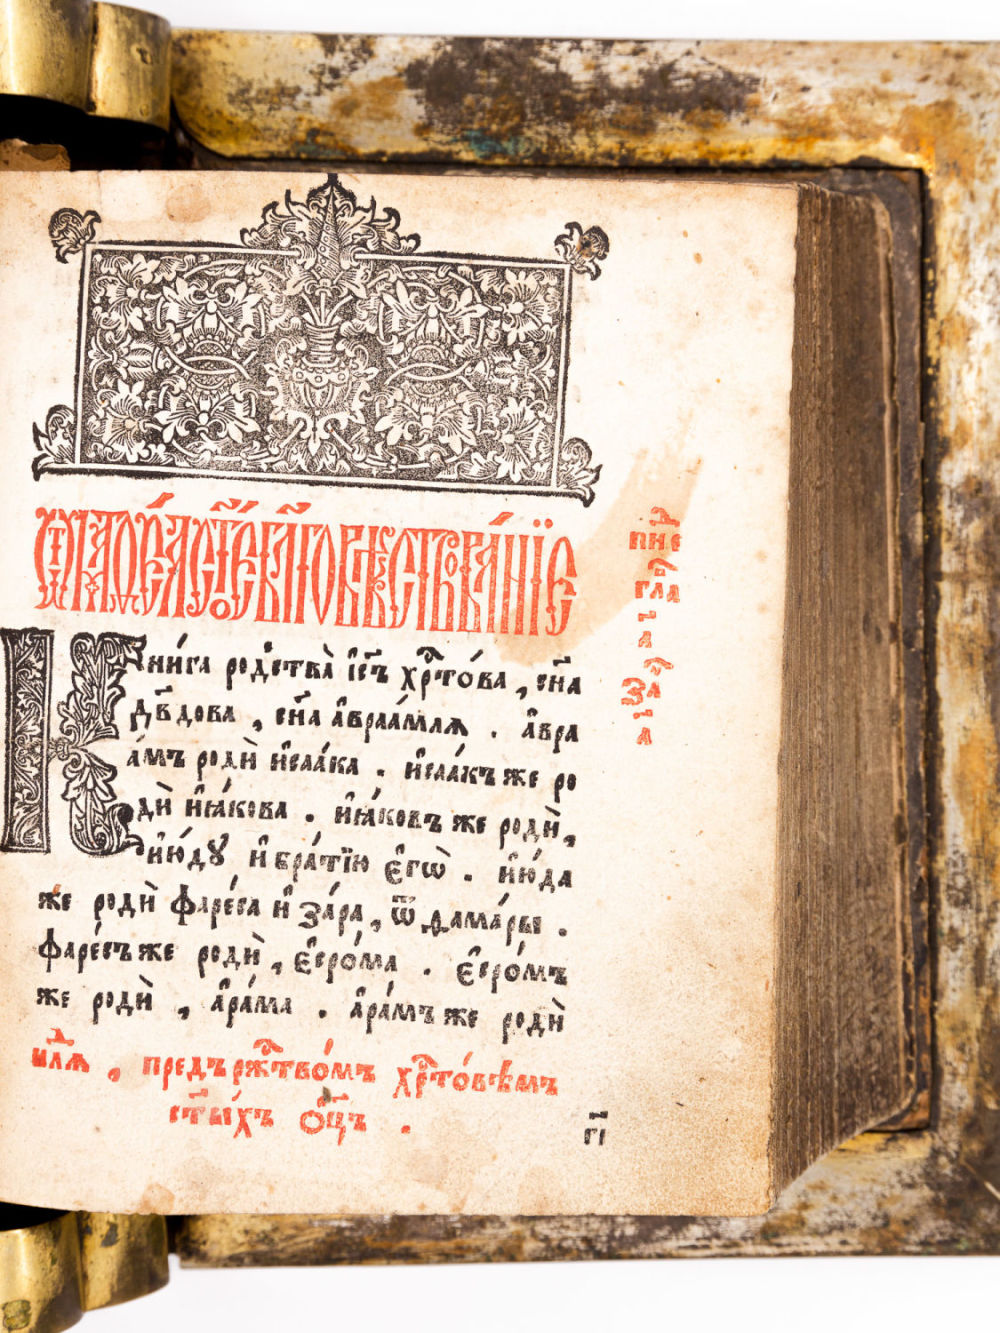 ѿ маѳе́а ст҃ое бл҃говѣствова́нїе
Кни́га родс̾тва̀ і҆с҃ъ хрⷭ҇то́ва , сн҃а
дв҃дова , сн҃а а҆враа́млѧ . а҆вра
а́мъ родѝ и҆саа́ка . и҆саа́къ же ро
дѝ и҆ꙗ́кова . и҆ꙗ́ковъ же родѝ ,
и҆ю́дꙋ и҆ бра́тїю є҆гѡ̀ . и҆ю́да
же родѝ фаре́са и҆ за́ра , ѿ дама́ры .
фаре́съ же родѝ , є҆сро́ма . є҆сро́мъ
же родѝ , а҆ра́ма . а҆ра́мъ же родѝ
нⷣлѧ , предъ ржⷭ҇тво́мъ хрⷭ҇то́вѣмъ
ст҃ы́хъ ѻ҆ц҃ъ .
г҃і